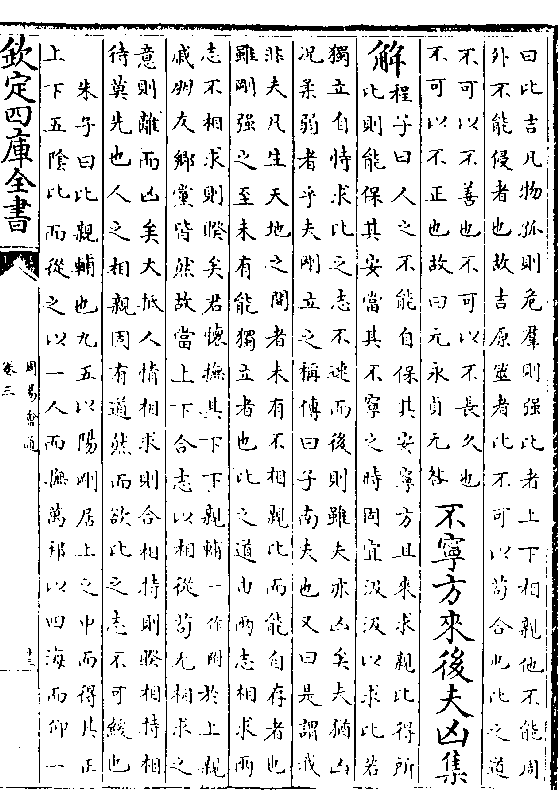 曰比吉凡物孤則危羣則强比者上下相親他不能周
外不能侵者也故吉原筮者比不可以苟合也比之道
不可以不善也不可以不長久也
不可以不正也故曰元永貞无咎
不寧方來後夫凶集
解
程子曰人之不能自保其安寧方且來求親比得所
比則能保其安當其不寧之時固宜汲汲以求比若
獨立自恃求比之志不速而後則雖夫亦凶矣夫猶凶
況柔弱者乎夫剛立之稱傳曰子南夫也又曰是謂我
非夫凡生天地之間者未有不相親比而能自存者也
雖剛强之至未有能獨立者也比之道由兩志相求兩
志不相求則睽矣君懷撫其下下親輔一作附於上親
戚朋友鄉黨皆然故當上下合志以相從苟无相求之
意則離而凶矣大抵人情相求則合相持則睽相持相
待莫先也人之相親固有道然而欲比之志不可緩也
朱子曰比親輔也九五以陽剛居上之中而得其正
上下五陰比而從之以一人而撫萬邦以四海而仰一
欽定四庫全書
周易會通
卷三
十三